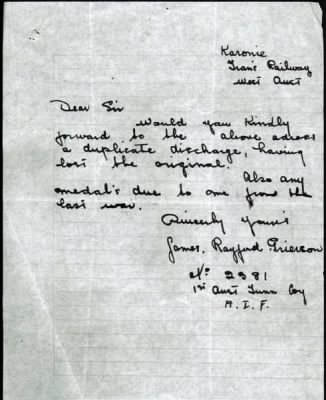 Karonie
Trans Railway
West Aust
Dear Sir
Would you kindly
forward to the above adress
a duplicate discharge, having
lost the original.
Also any
medal's due to me from the
last war.
Sincerly Your's
James, Rayford Grierson
No 2381
1st Aust Tunn Coy
A.I.F.